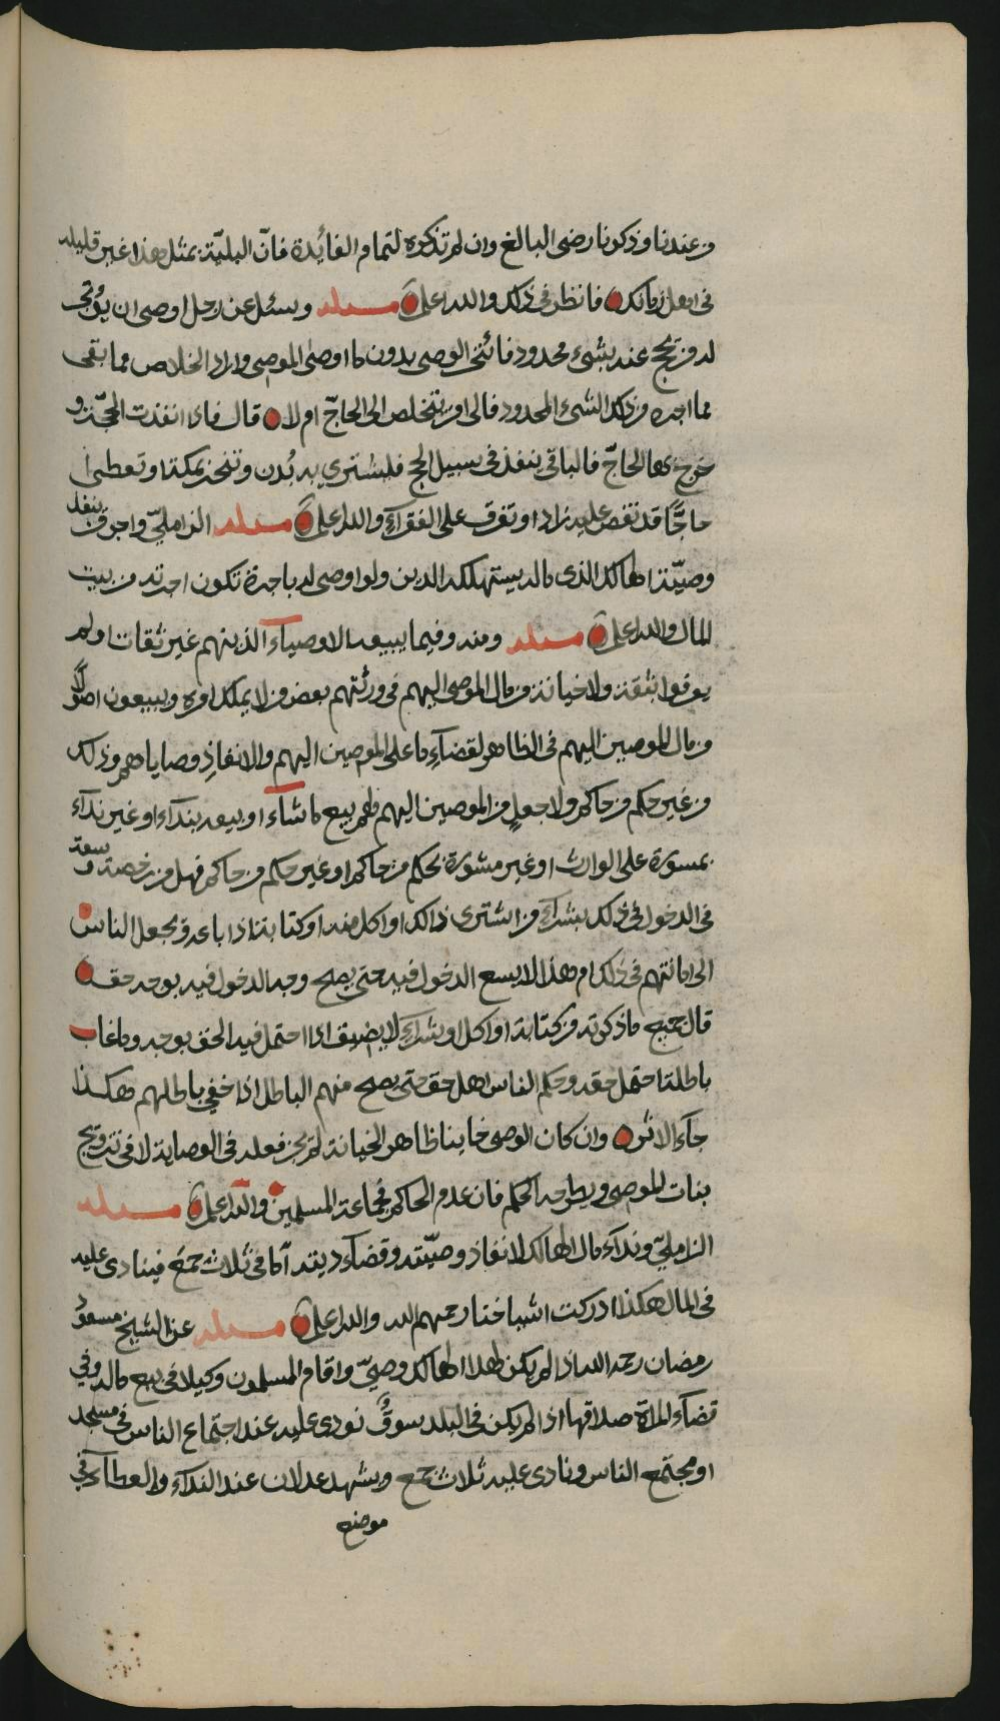 من عندنا وذكرنا رضى البالغ وان لم تذكره لتمام الفائدة فانّ البليّة بمثل هذا غير قليله
فى اهل زمانك فانظر فى ذلك والله اعلم مسئله وسئل عن رجل اوصى ان يؤتجر
له من يحج عنه بشىء محدود فائتجر الوصى بدون ما اوصى الموصى واراد الخلاص مما بقى
مما اجره من ذلك الشىء المحدود فالى من يتخلص الى الحاجّ ام لا قال فاذا انفذت الحجّة و
خرج بها الحاجّ فالباقى ينفذ فى سبيل الحج فليشترى به بُدن وتنحر بمكة او تعطى
حاجًّا قد نقص عليه زاد او تفرق على الفقرآء والله اعلم مسئله الزاملىّ واجرة من ينفذ
وصيّة الهالك الذى ماله يستهلكه الدين ولو اوصى له باجرة تكون اجرته من بيت
المال والله اعلم مسئله ومنه وفيما يبيعه الاوصيآء الذينهم غير ثقات او لم
يعرفوا بثقة ولا خيانة من مال الموصى اليهم فى ورثتهم بعض من لا يملك امره ويبيعون اصولًا
من مال الموصين اليهم فى الظاهر لقضآء ما على الموصين اليهم والانفاذ وصاياهم وذلك
من غير حكم من حاكم ولا جعل من الموصين اليهم لهم بيع ما شآء او بيعه بندآء او غير ندآء
بمشورة على الوارث او غير مشورة بحكم من حاكم او غير حكم من حاكم فهل من رخصة وسعة
فى الدخول فى ذلك بشرآء من اشترى ذالك او اكل منه او كتابته اذا باعه ويجعل الناس
الى امانتهم فى ذلك ام هذا لا يسع الدخول فيه حتى يصح وجه الدخول فيه بوجه حق
قال جميع ما ذكرته من كتابة او اكل او بشرآء لا يضيق اذا احتمل فيه الحق بوجه وما غاب
باطله احتمل حقه وحكم الناس اهل حق حتى يصح منهم الباطل اذا خفى باطلهم هكذا
جآء الاثر وان كان الوصى خاينا ظاهر الخيانة لم يجز فعله فى الوصاية لا فى تزويج
بنات الموصى ويطرحه الحكم فان عدم الحاكم فجماعة المسلمين والله اعلم مسئله
الزاملىّ وندآء مال الهالك لانفاذ وصيّته وقضآء ديته امّا فى ثلاث جمع فينادى عليه
فى المال هكذا ادركت اشياخنا رحمهم الله والله اعلم مسئله عن الشيخ مسعود
رمضان رحمه الله اذا لم يكن لهذا الهالك وصىّ واقام المسلمون وكيلا فى بيع ماله وفى
قضآء المراة صداقها اذا لم يكن فى البلد سوقٌ نودى عليه عند اجتماع الناس فى مسجد
او مجتمع الناس ونادى عليه ثلاث جمع ويشهد عدلان عند الندآء والعطآء فى
موضع